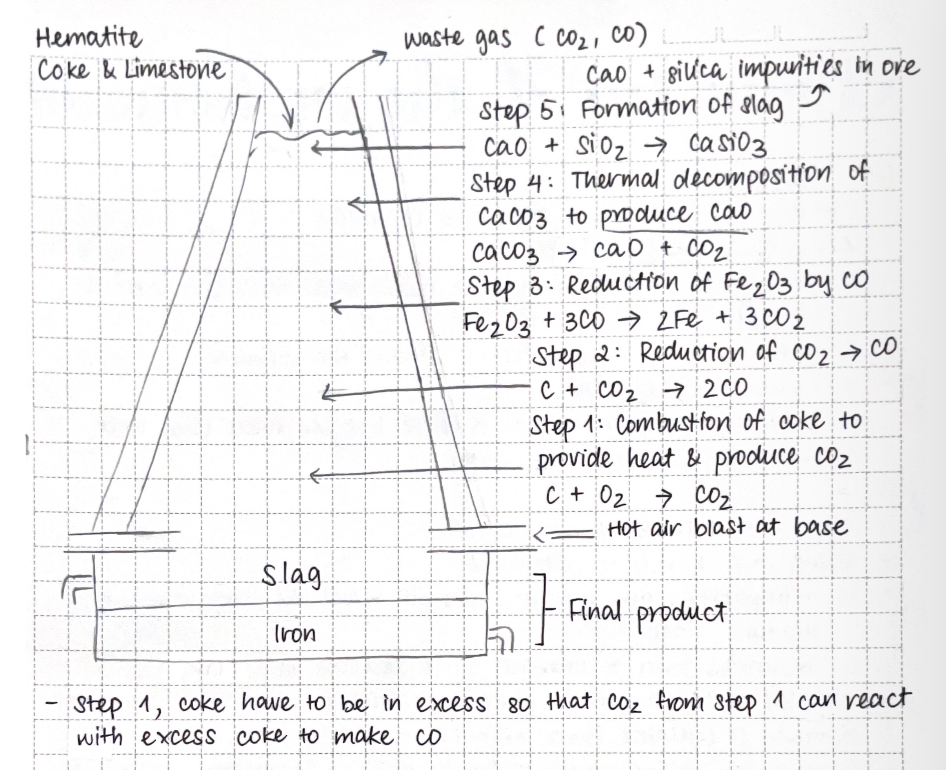 Hematite
Coke & Limestone
waste gas (CO2, CO)
CaO + silica impurities in ore
Step 5: Formation of slag
CaO + SiO2 → CaSiO3
Step 4: Thermal decomposition of
CaCO3 to produce CaO
CaCO3 → CaO + CO2
Step 3: Reduction of Fe2O3 by CO
Fe2O3 + 3CO → 2Fe + 3CO2
Step 2: Reduction of CO2 → CO
C + CO2 → 2CO
Step 1: Combustion of coke to
provide heat & produce CO2
C + O2 → CO2
Hot air blast at base
Slag
Iron
Final product
- Step 1, coke have to be in excess so that CO2 from step 1 can react
with excess coke to make CO